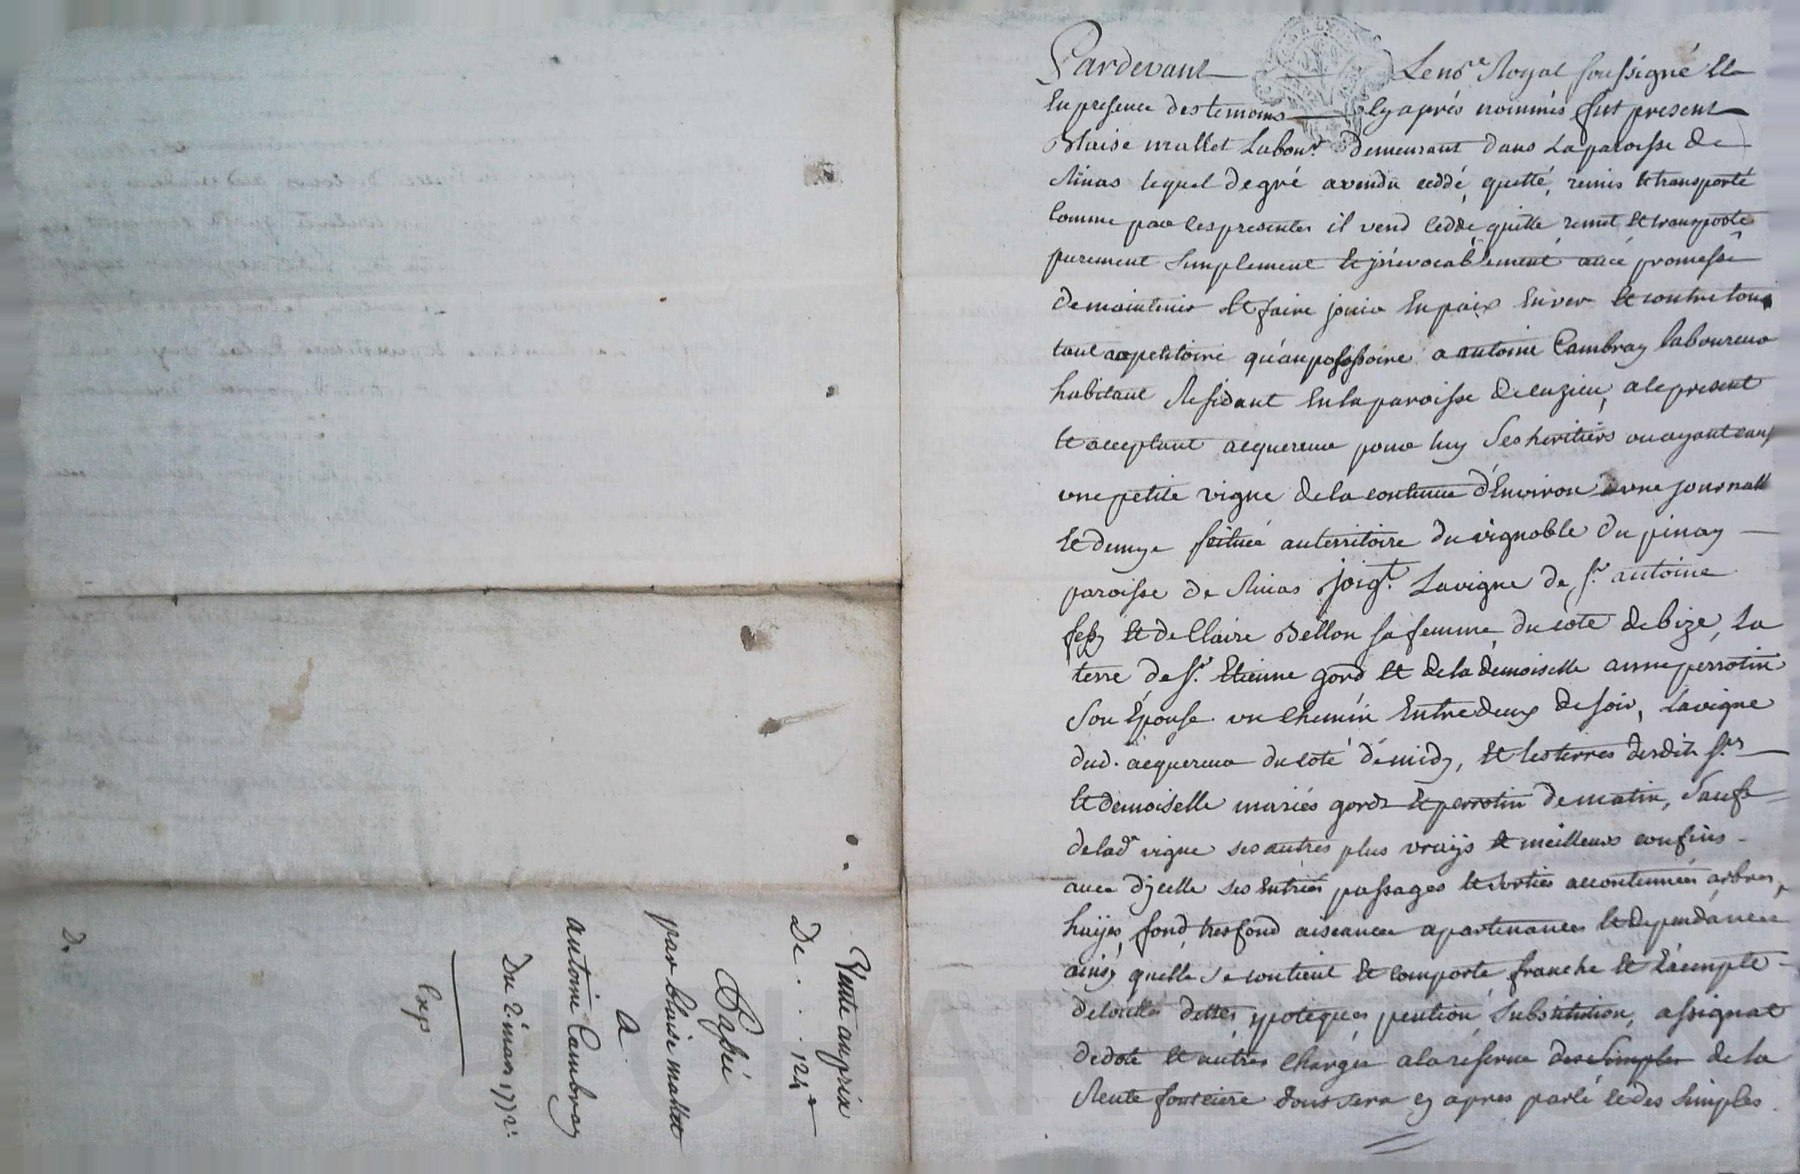 Vente au prix
De . . . 124 ₶
Passé
par blaise mallet
A
antoine Cambray
Du 2e mars 1772.
Exp
D.
Pardevant Le nore Royal soussigné Et
En presence des temoins Cy après nommés fut present
Blaise mallet Labour. demeurant dans La paroisse de
Rivas lequel de gré a vendu ceddé, quitté, remis Et transporté
Comme par les presentes il vend Cedde, quitte remet Et transporte
purement Simplement Et jrrevocablement avec promesse
de maintenir Et faire jouir En paix Enver Et contre tous
tant au petitoire qu'au possessoire a antoine Cambray laboureur
habitant Residant En la paroisse de Cuzieu, a le present
Et acceptant acquereur pour luy Ses heritiers ou ayant cause
une petite vigne de la contenue d'Environ une journall
Et demye scituée au territoire du vignoble du pinay
paroisse de Rivas joigt. La vigne de sr. antoine
Et de Claire Bellon sa femme du coté de bize, La
terre de Sr. Etienne gord Et de la demoiselle anne perrotin
Son Épouse un Chemin Entre deux de soir, La vigne
dud. acquereur du coté de midy, Et les terres desdits srs
Et demoiselle mariés gord Et perrotin de matin, Saufs
de lade vigne ses autres plus vrays Et meilleurs confins
avec d'jcelle ses Entrées passages Et sorties accoutumées arbres,
hayes, fond, tresfond aisances apartenances Et dependances
ainsy quelle se contient Et comporte, franche Et Exempte
de toutes dettes, ypoteques pention, Substitution, assignat
de dote Et autres Charges a la reserve des Simples de la
Rente fonciere dont sera cy apres parlé Et des simples